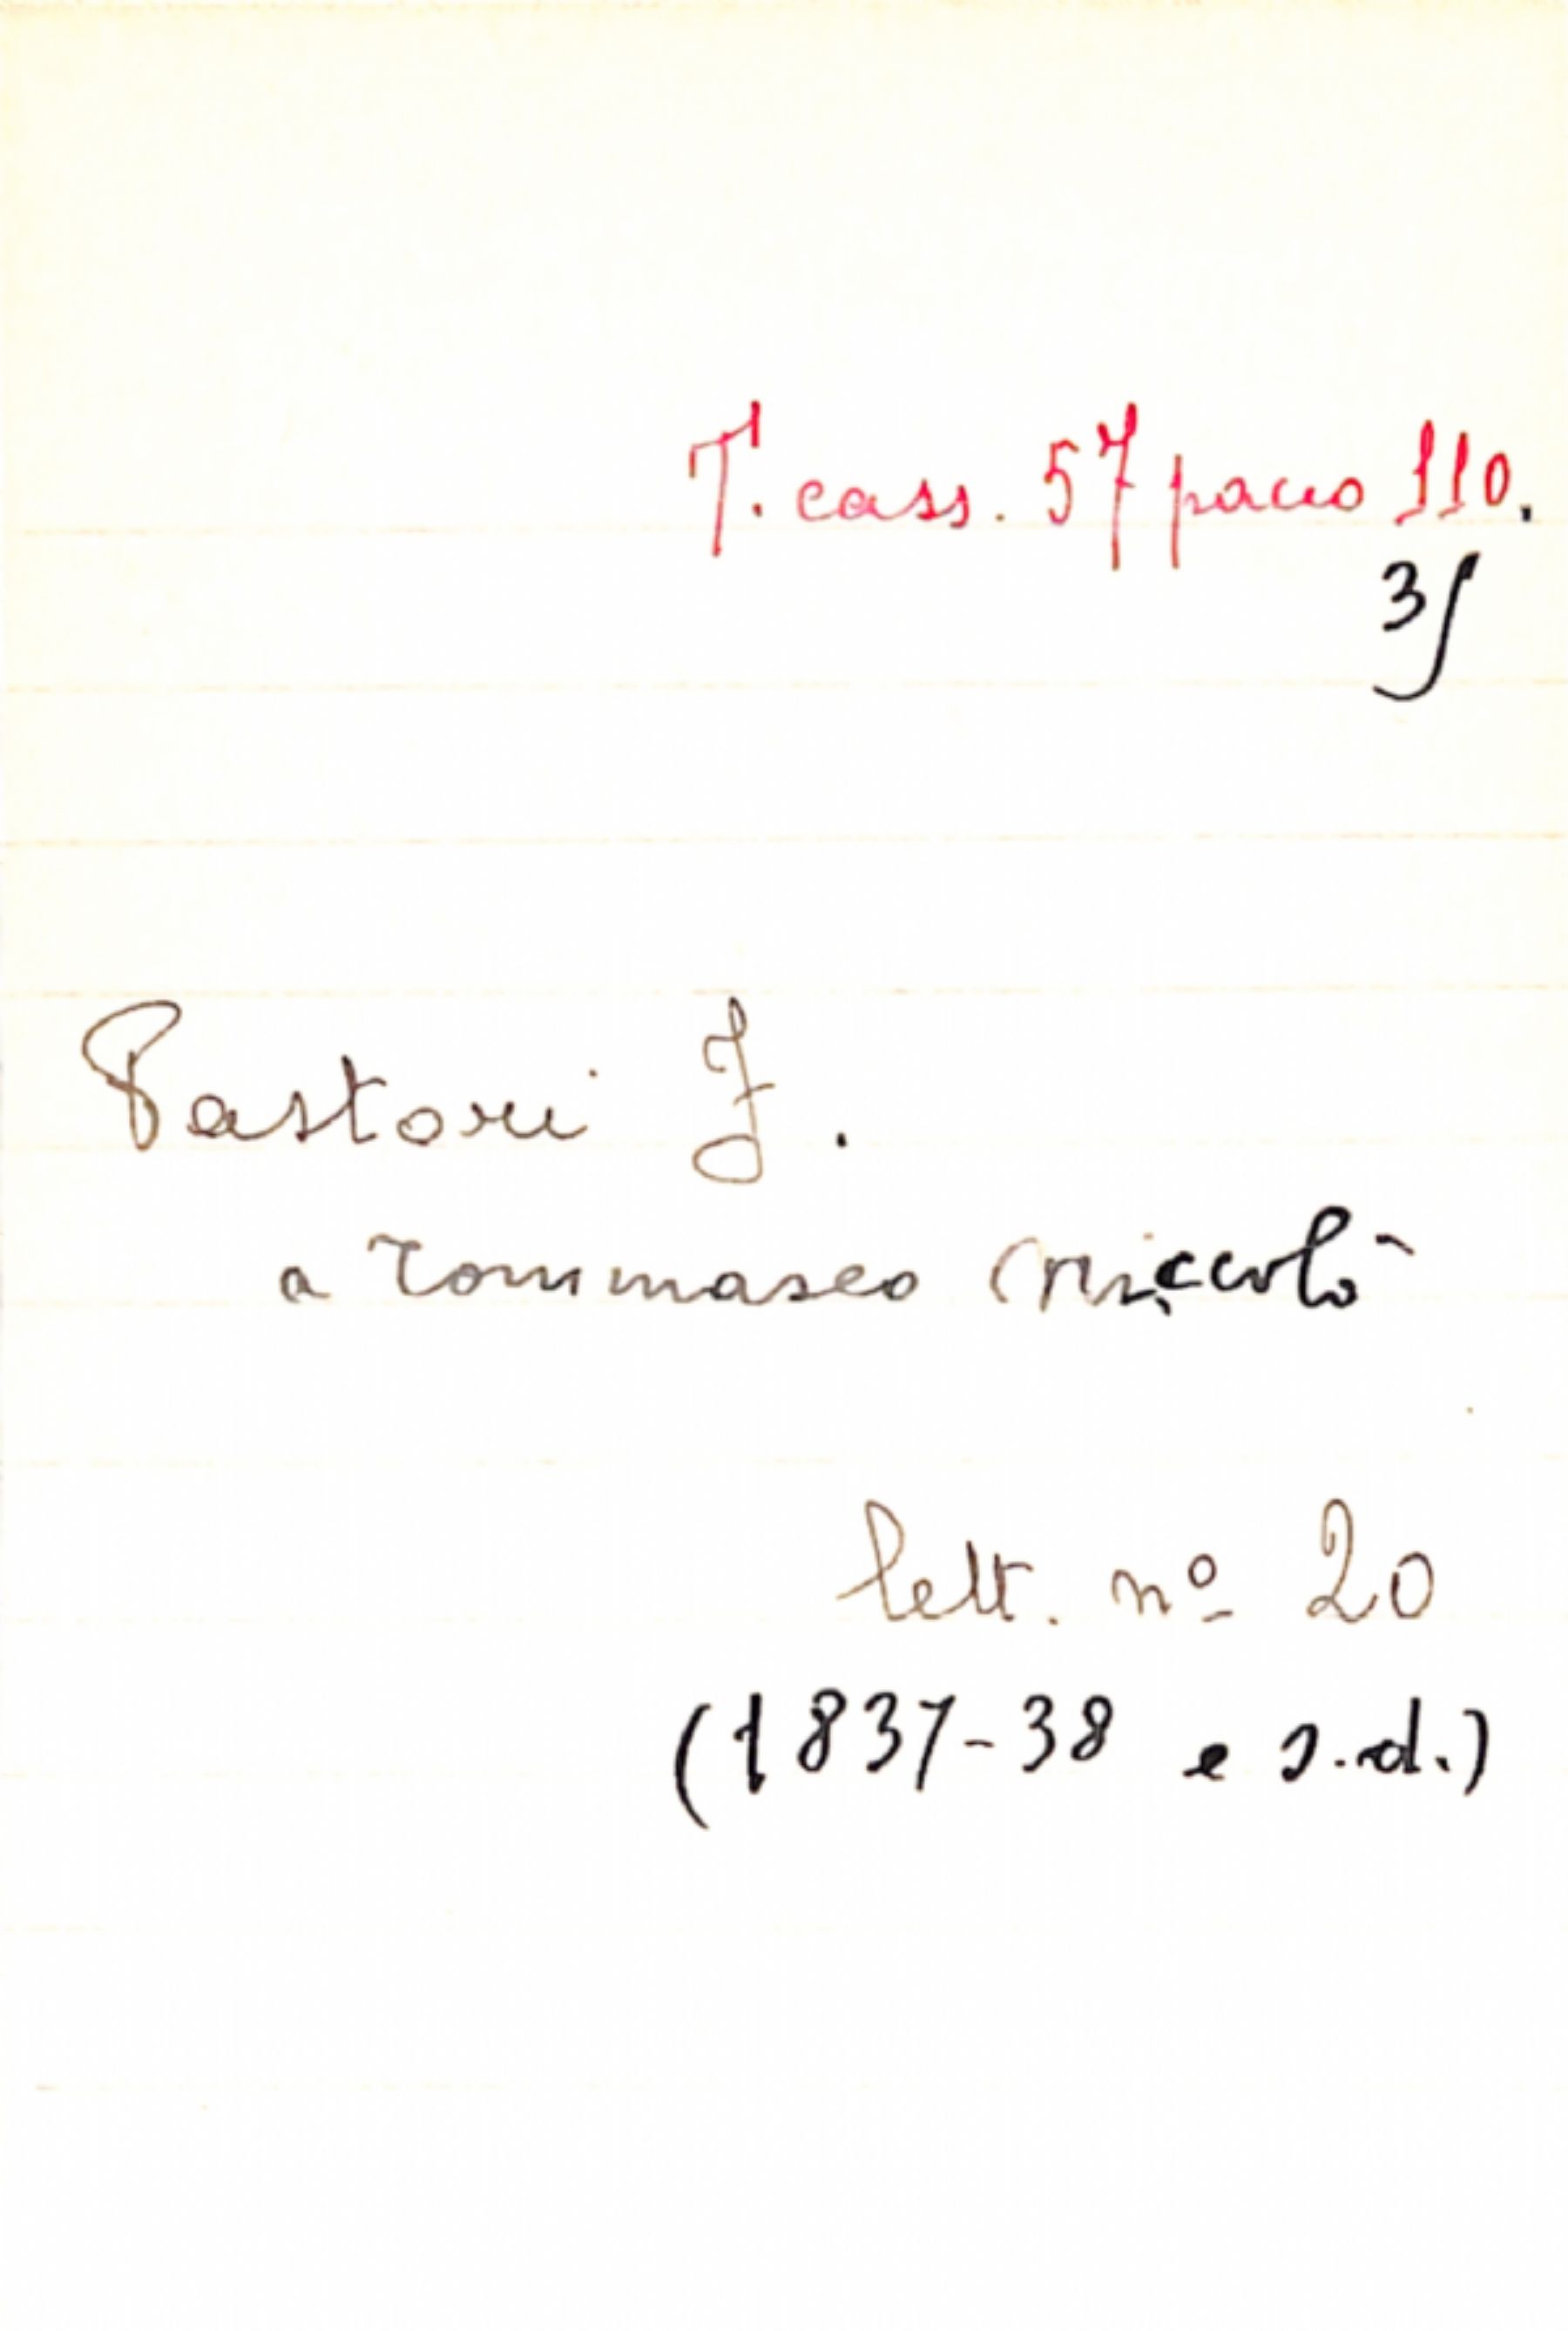 T. cass. 57 pacco 110.
3)
Pastori J.
a Tommaseo Niccolò
lett. nº 20
(1837-38 e s.d.)